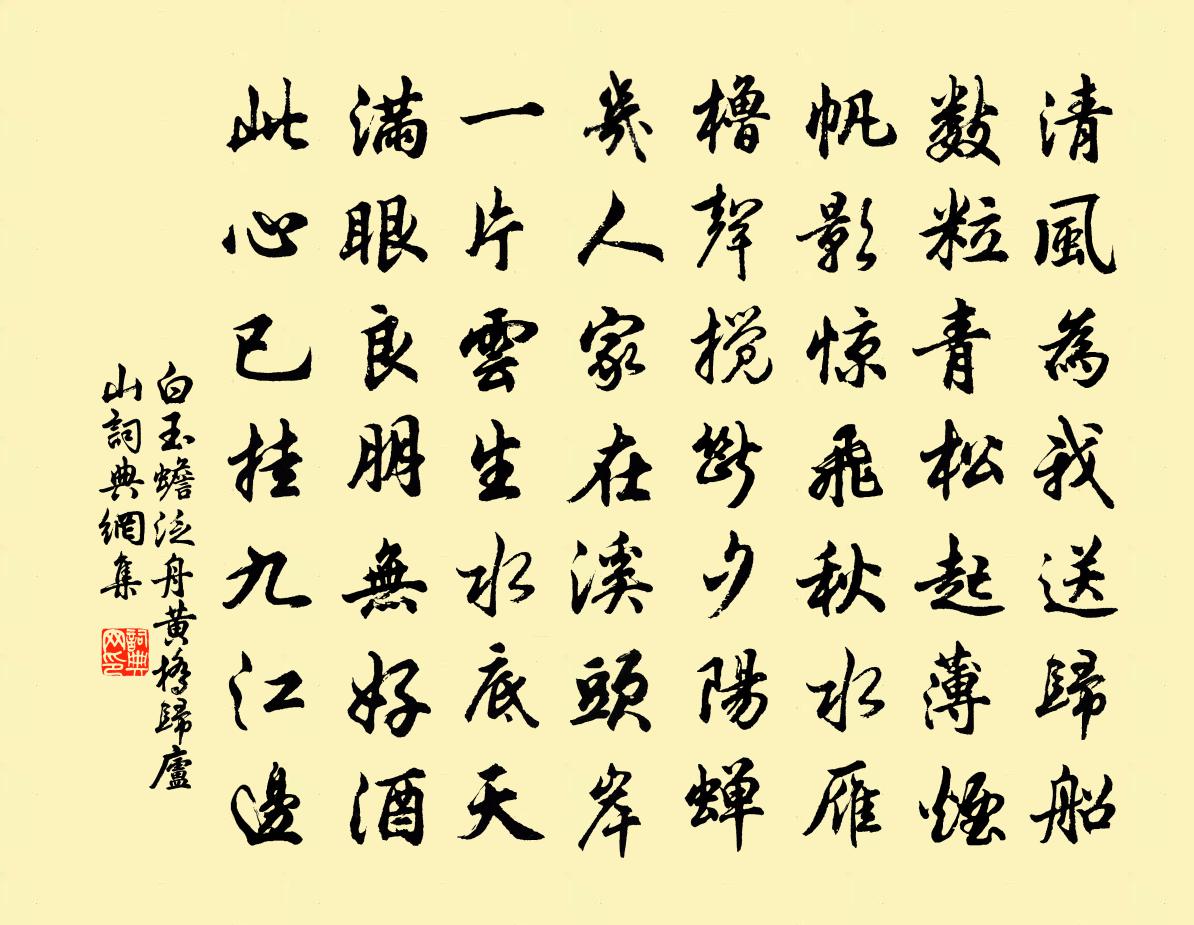 清風為我送歸船
數粒青松起薄煙
帆影惊飛秋水雁
櫓聲搅斷夕陽蝉
幾人家在溪頭岸
一片雲生水底天
滿眼良朋無好酒
此心已挂九江邊
白玉蟾泛舟黃橋歸廬
山詞典網集
詞典
网印